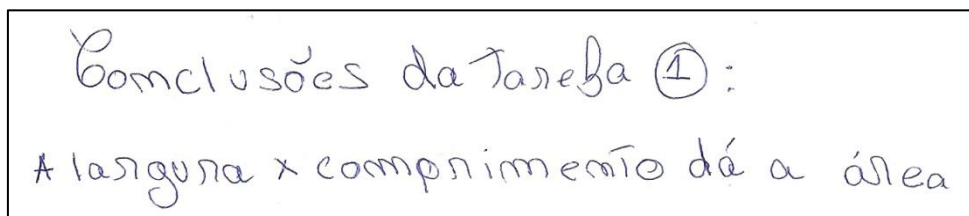 Conclusões da Tarefa ①:
A largura x comprimento dá a área